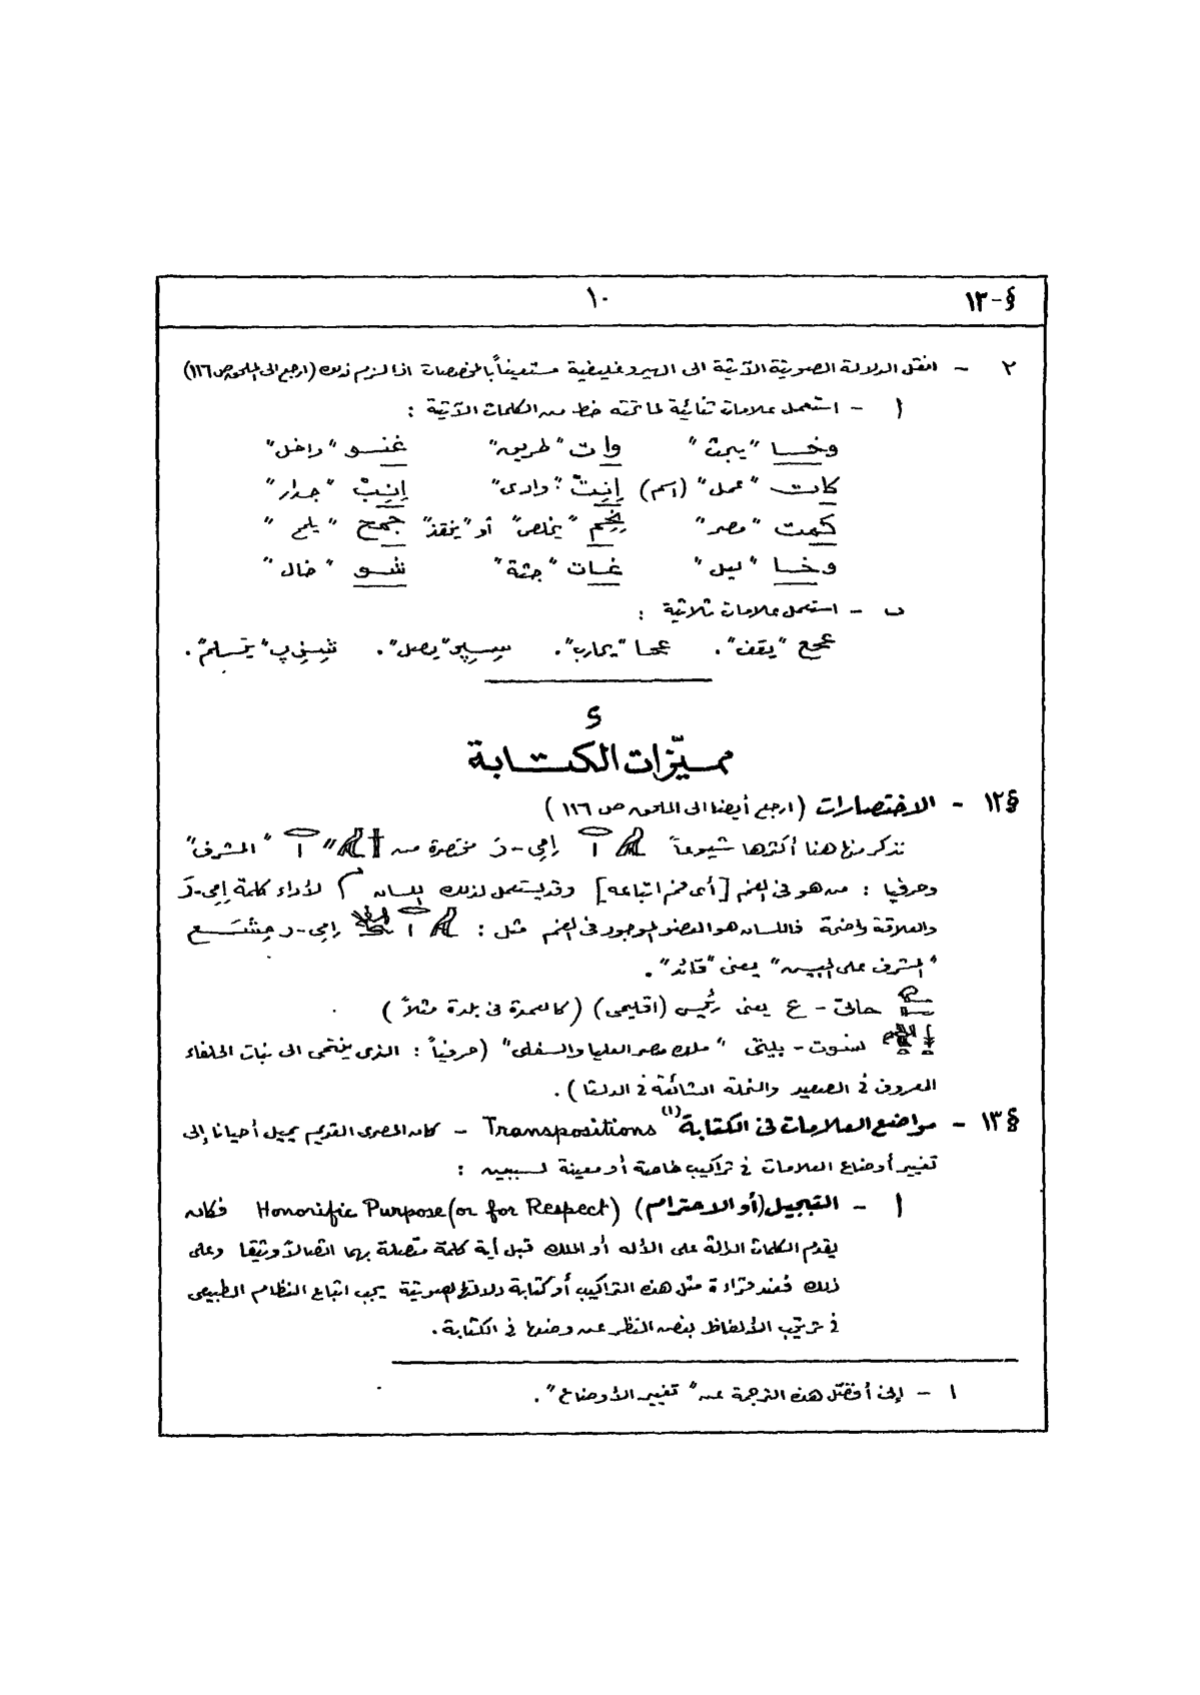 §-١٣
١٠
٢ - انقل الدلالة الصوتية الآتية الى الهيروغليفية مستعينًا بالمخصصات اذا لزم ذلك (ارجع الى الملحق ص ١١٦)
أ - استعمل علامات ثنائية لما تحته خط من الكلمات الآتية :
وخـــا "يبحث" وات "طريق" غنــو "داخل"
كات "عمل" (اسم) إنِتْ "وادى" إنِبْ "جدار"
كمت "مصر" نِحِم "يخلص" أو "ينقذ" جمح "يلمح"
وخـــا "ليل" غــات "جثة" شــو "خال"
ب - استعمل علامات ثلاثية :
عحع "يقف". عحــا "يحارب". سـپـر "يصل". شـسـپ "يتسلم".
د
مميّزات الكتـابة
§١٢ - الاختصارات (ارجع أيضا الى الملحق ص ١١٦)
نذكر منها هنا أكثرها شيوعاً إمِي-رَ مختصرة من "المشرف"
وحرفيا : من هو فى الفم [أى فم اتباعه] وقد يستعمل لذلك اللسان لأداء كلمة إمِي-رَ
والعلاقة واضحة فاللسان هو العضو الموجود فى الفم مثل : إمِي-ر مِشَــع
"المشرف على الجيش" يعنى "قائد".
حاتى - ع يعنى رئيس (اقليمى) (كالعمدة فى بلدة مثلاً)
نسوت - بيتى "ملك مصر العليا والسفلى" (حرفياً : الذى ينتمى الى نبات الحلفاء
المعروف فى الصعيد والنحلة الشائعة فى الدلتا).
§١٣ - مواضع العلامات فى الكتابة(١) Transpositions - كان المصرى القديم يميل أحيانا إلى
تغيير أوضاع العلامات فى تراكيب خاصة أو معينة لسببين :
أ - التبجيل (أو الاحترام) Honorific Purpose (or for Respect) فكان
يقدم الكلمات الدالة على الأله أو الملك قبل أية كلمة متصلة بهما اتصالاً وثيقا وعلى
ذلك فعند قراءة مثل هذه التراكيب أو كتابة دلالتها الصوتية يجب اتباع النظام الطبيعى
فى ترتيب الألفاظ بغض النظر عن وضعها فى الكتابة.
١ - إنى أفضّل هذه الترجمة عن "تغيير الأوضاع".